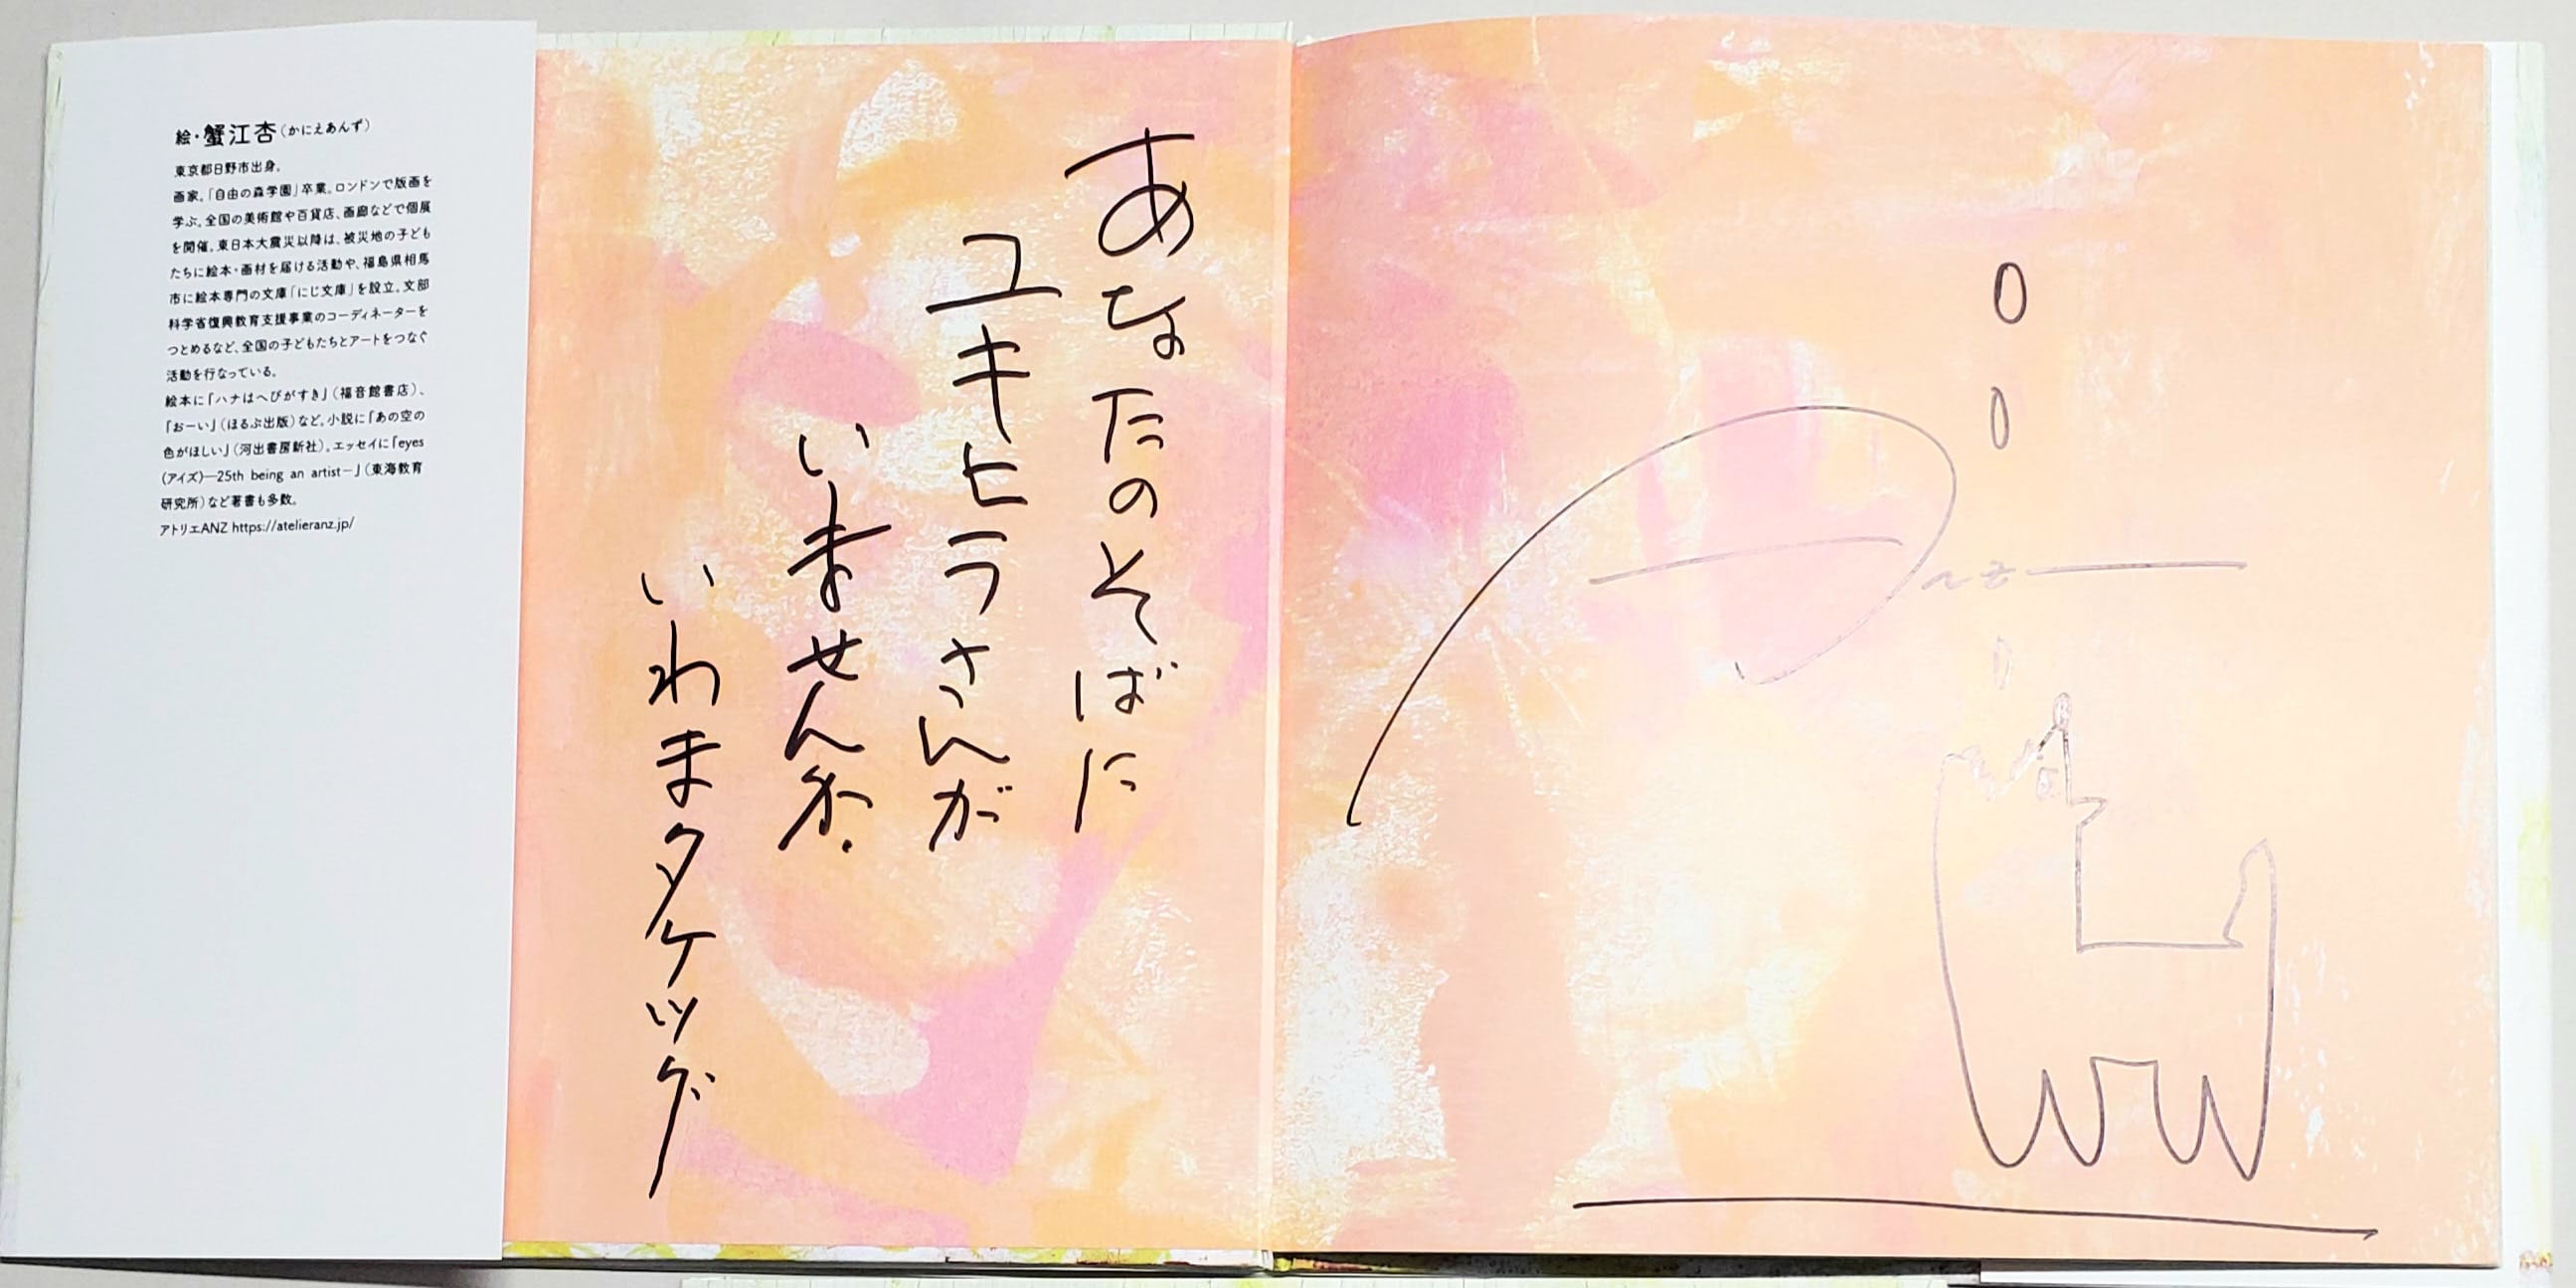 絵・蟹江杏(かにえあんず)
東京都日野市出身。
画家。「自由の森学園」卒業。ロンドンで版画を
学ぶ。全国の美術館や百貨店、画廊などで個展
を開催。東日本大震災以降は、被災地の子ども
たちに絵本・画材を届ける活動や、福島県相馬
市に絵本専門の文庫「にじ文庫」を設立。文部
科学省復興教育支援事業のコーディネーターを
つとめるなど、全国の子どもたちとアートをつなぐ
活動を行なっている。
絵本に「ハナはへびがすき」(福音館書店)、
「おーい」(ほるぷ出版)など。小説に「あの空の
色がほしい」(河出書房新社)。エッセイに「eyes
(アイズ)―25th being an artist―」(東海教育
研究所)など著書も多数。
アトリエANZ https://atelieranz.jp/
あなたのそばに
ユキヒラさんが
いませんか.
いわまタケッグ
Anz